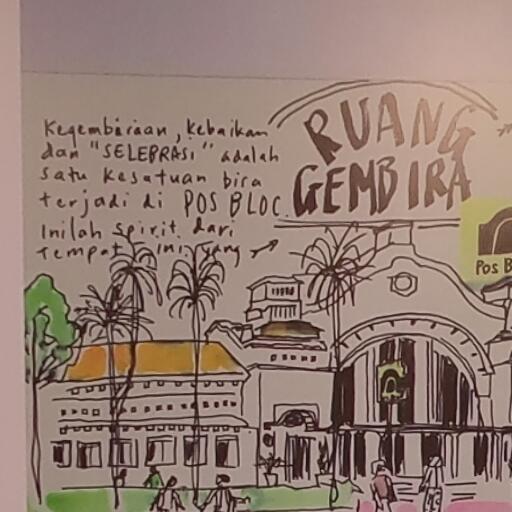 Kegembiraan, Kebaikan
dan "SELEBRASI" adalah
satu kesatuan bisa
terjadi di POS BLOC.
Inilah spirit dari
tempat ini yang
RUANG
GEMBIRA
Pos B